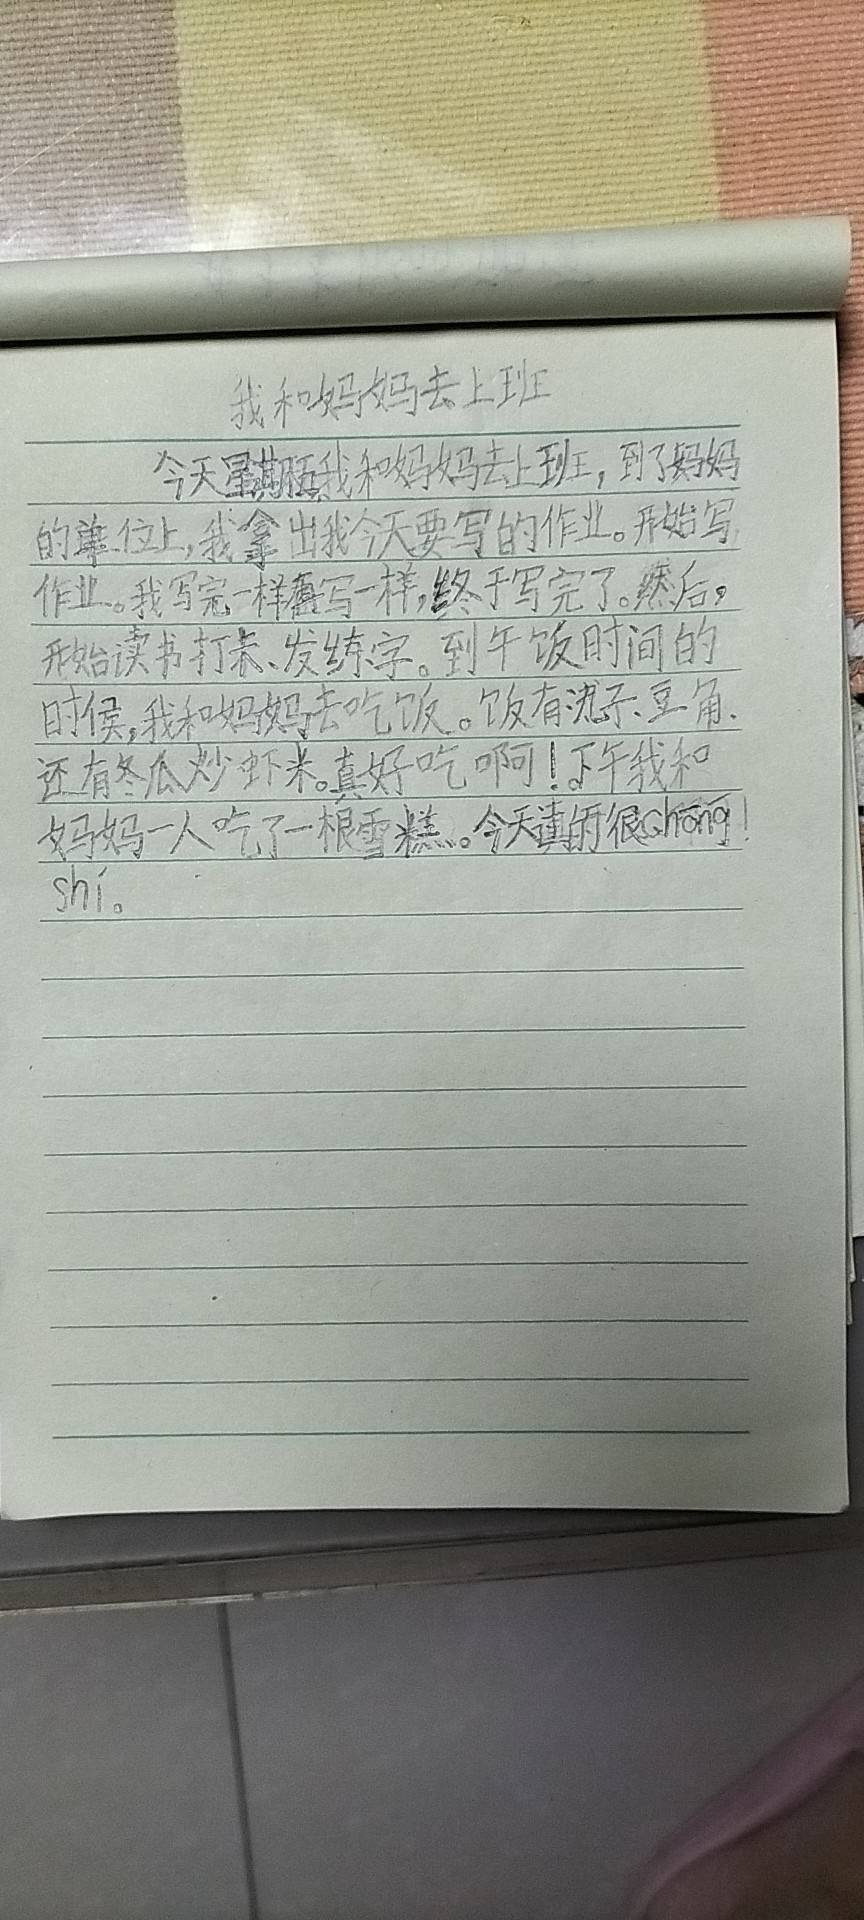 我和妈妈去上班
今天星期五我和妈妈去上班，到了妈妈
的单位上，我拿出我今天要写的作业。开始写
作业。我写完一样写一样，终于写完了。然后，
开始读书打卡、发练字。到午饭时间的
时候，我和妈妈去吃饭。饭有汤子、豆角、
还有冬瓜炒虾米。真好吃啊！下午我和
妈妈一人吃了一根雪糕。今天真的很chōng
shí。